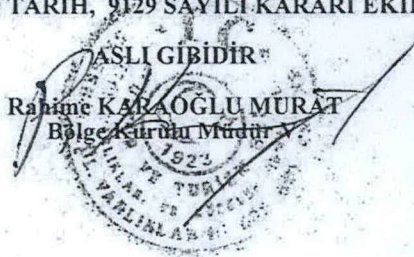 TARİH, 9129 SAYILI KARARI EKİ
ASLI GİBİDİR
Rahime KARAOĞLU MURAT
Bölge Kurulu Müdür V.
1923
VE TURİ
VARLIKLAR